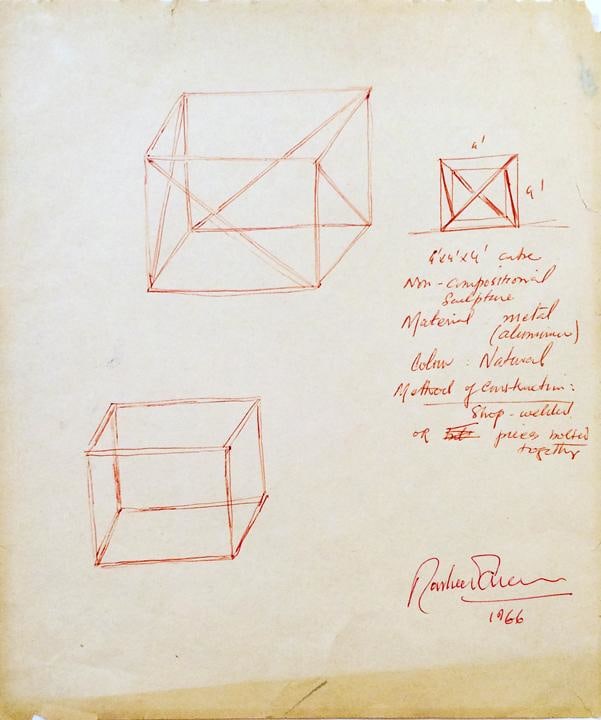 4'
4'
4'x4'x4' cube
Non-compositional
Sculpture
Material metal
(aluminium)
Colour : Natural
Method of Construction:
Shop-welded
OR pieces bolted
together
Rasheed Araeen
1966